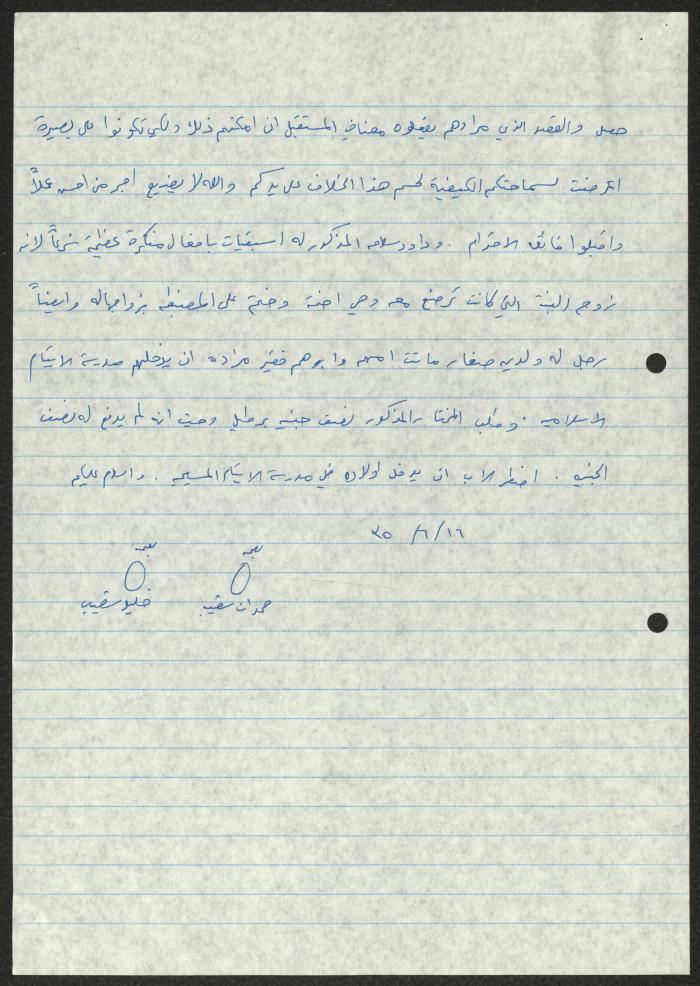 حصل والقصد الذي مرادهم يفعلوه معنا في المستقبل ان امكنهم ذلك ولكي تكونوا على بصيرة
اعرضت لسماحتكم الكيفية لحسم هذا الخلاف على يدكم والله لا يضيع اجر من احسن عملاً
واقبلوا فائق الاحترام . وداود سلامه المذكور له اسبقيات بافعال منكرة عظيمة شرعاً لانه
زوج البنت التي كانت ترضع معه وهي اخته وختم على المضبطه بزواجها له وايضاً
رجل له ولدين صغار ماتت امهم وابوهم فقير مراده ان يدخلهم مدرسة الايتام
الاسلاميه . وطلب المختار المذكور نصف جنيه برطيل وحيث انه لم يدفع له نصف
الجنيه . اضطر الاب ان يدخل اولاده في مدرسة الايتام المسيحيه . والسلام عليكم
١٦/٦/ ٣٥
بصمة بصمة
حمدان شقيب خليل شقيب